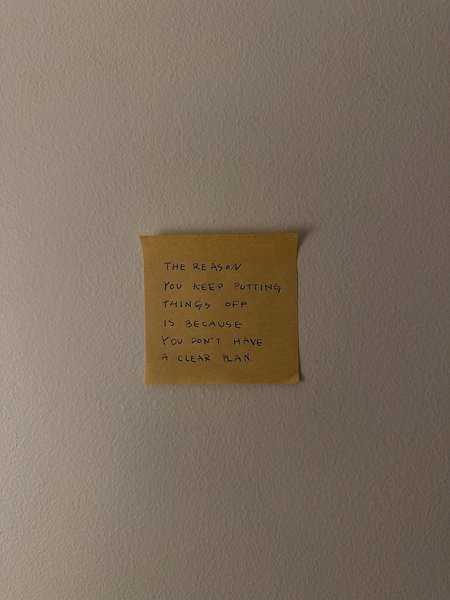 THE REASON
YOU KEEP PUTTING
THINGS OFF
IS BECAUSE
YOU DON'T HAVE
A CLEAR PLAN.